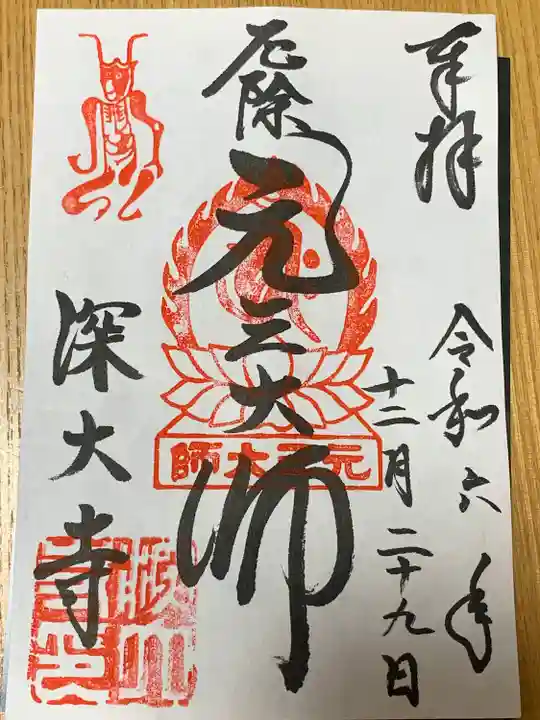 奉拝
令和六年
十二月二十九日
厄除
元三大師
元三大師
深大寺